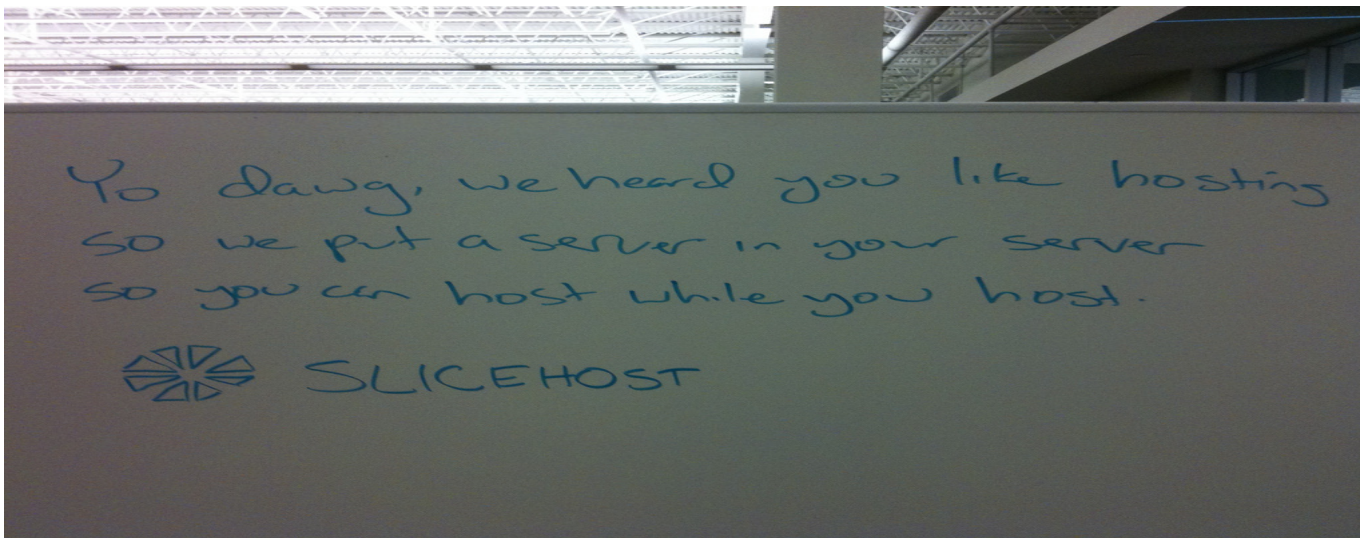 Yo dawg, we heard you like hosting
so we put a server in your server
so you can host while you host.
SLICEHOST